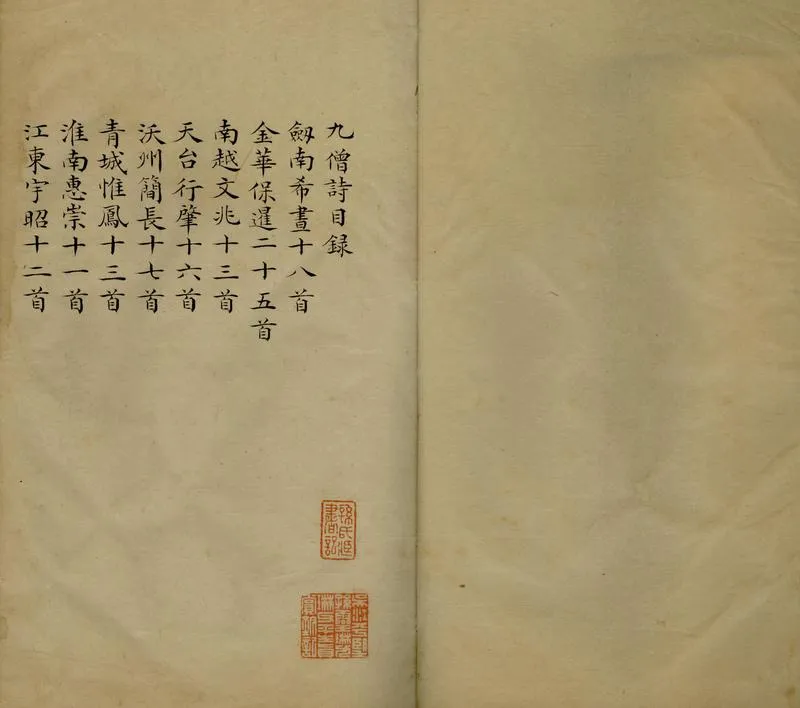 九僧詩目録
劒南希晝十八首
金華保暹二十五首
南越文兆十三首
天台行肇十六首
沃州簡長十七首
青城惟鳳十三首
淮南惠崇十一首
江東宇昭十二首
孫氏